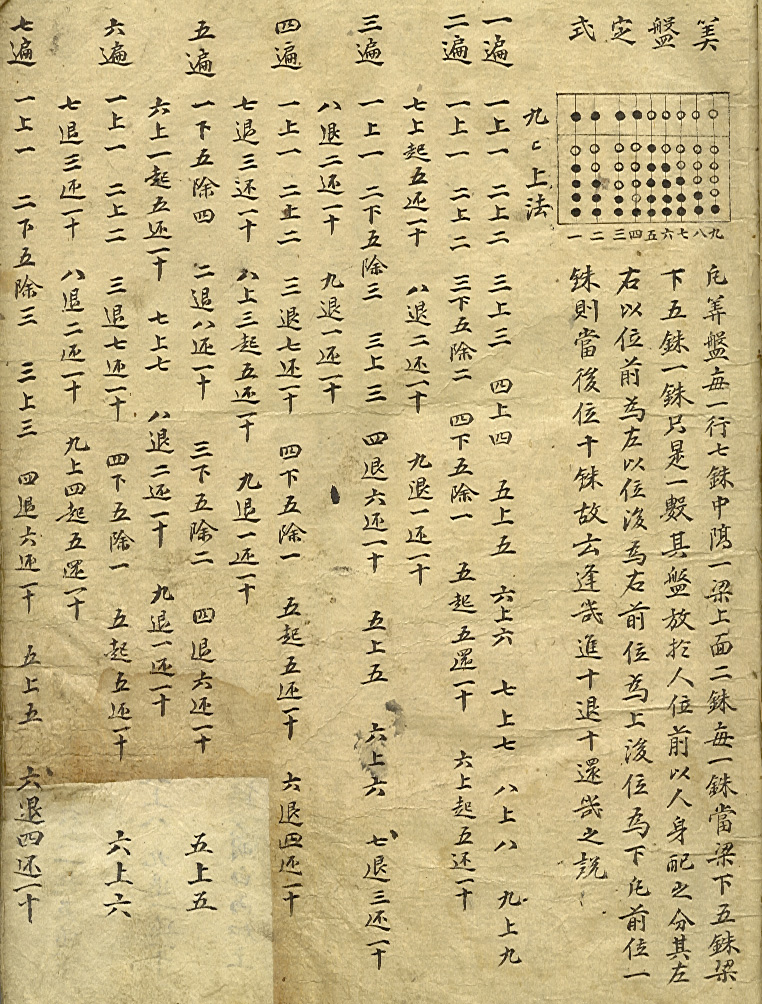 算盤定式
一二三四五六七八九
凡算盤每一行七銖中隔一梁上面二銖每一銖當梁下五銖梁
下五銖一銖只是一數其盤放於人位前以人身配之分其左
右以位前為左以位後為右前位為上後位為下凡前位一
銖則當後位十銖故云逢幾進十退十還幾之說
九九上法
一遍 一上一 二上二 三上三 四上四 五上五 六上六 七上七 八上八 九上九
二遍 一上一 二上二 三下五除二 四下五除一 五起五還一十 六上起五还一十
七上起五还一十 八退二还一十 九退一还一十
三遍 一上一 二下五除三 三上三 四退六还一十 五上五 六上六 七退三还一十
八退二还一十 九退一还一十
四遍 一上一 二上二 三退七还一十 四下五除一 五起五还一十 六退四还一十
七退三还一十 八上三起五还一十 九退一还一十
五遍 一下五除四 二退八还一十 三下五除二 四退六还一十 五上五
六上一起五还一十 七上七 八退二还一十 九退一还一十
六遍 一上一 二上二 三退七还一十 四下五除一 五起五还一十 六上六
七退三还一十 八退二还一十 九上四起五還一十
七遍 一上一 二下五除三 三上三 四退六还一十 五上五 六退四还一十